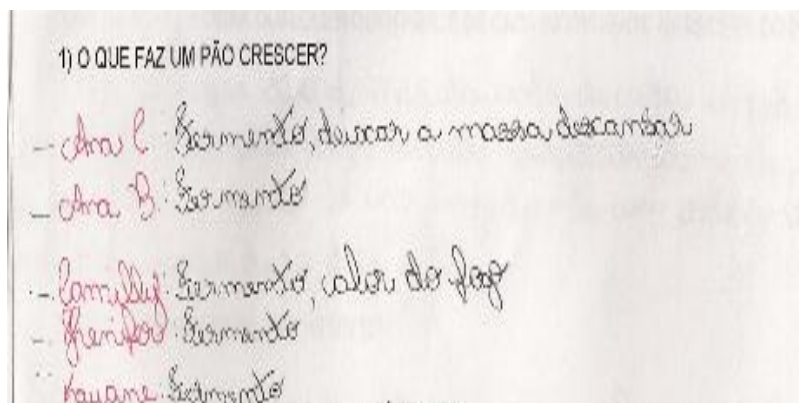 1) O QUE FAZ UM PÃO CRESCER?
- Ana C: Fermento, deixar a massa descansar
- Ana B: Fermento
- Camilly: Fermento, calor do fogo
- Jhenifer: Fermento
- Kauane: Fermento